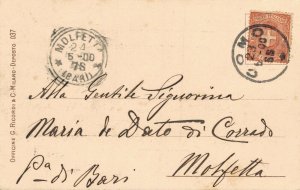 OFFICINE G. RICORDI & C. MILANO - DEPOSITO 037
MOLFETTA
24
5-00
7S
(BARI)
COMO
Alla Gentile Signorina
Maria de Dato di Corrado
Pa di Bari
Molfetta